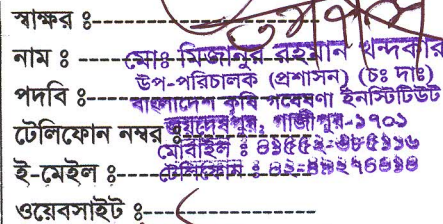 স্বাক্ষর ঃ
নাম ঃ মোঃ মিজানুর রহমান খন্দকার
উপ-পরিচালক (প্রশাসন) (চঃ দাঃ)
পদবি ঃ বাংলাদেশ কৃষি গবেষণা ইনস্টিটিউট
জয়দেবপুর, গাজীপুর-১৭০১
টেলিফোন নম্বর ঃ
মোবাইল ঃ
ই-মেইল ঃ টেলিফোন ঃ
ওয়েবসাইট ঃ